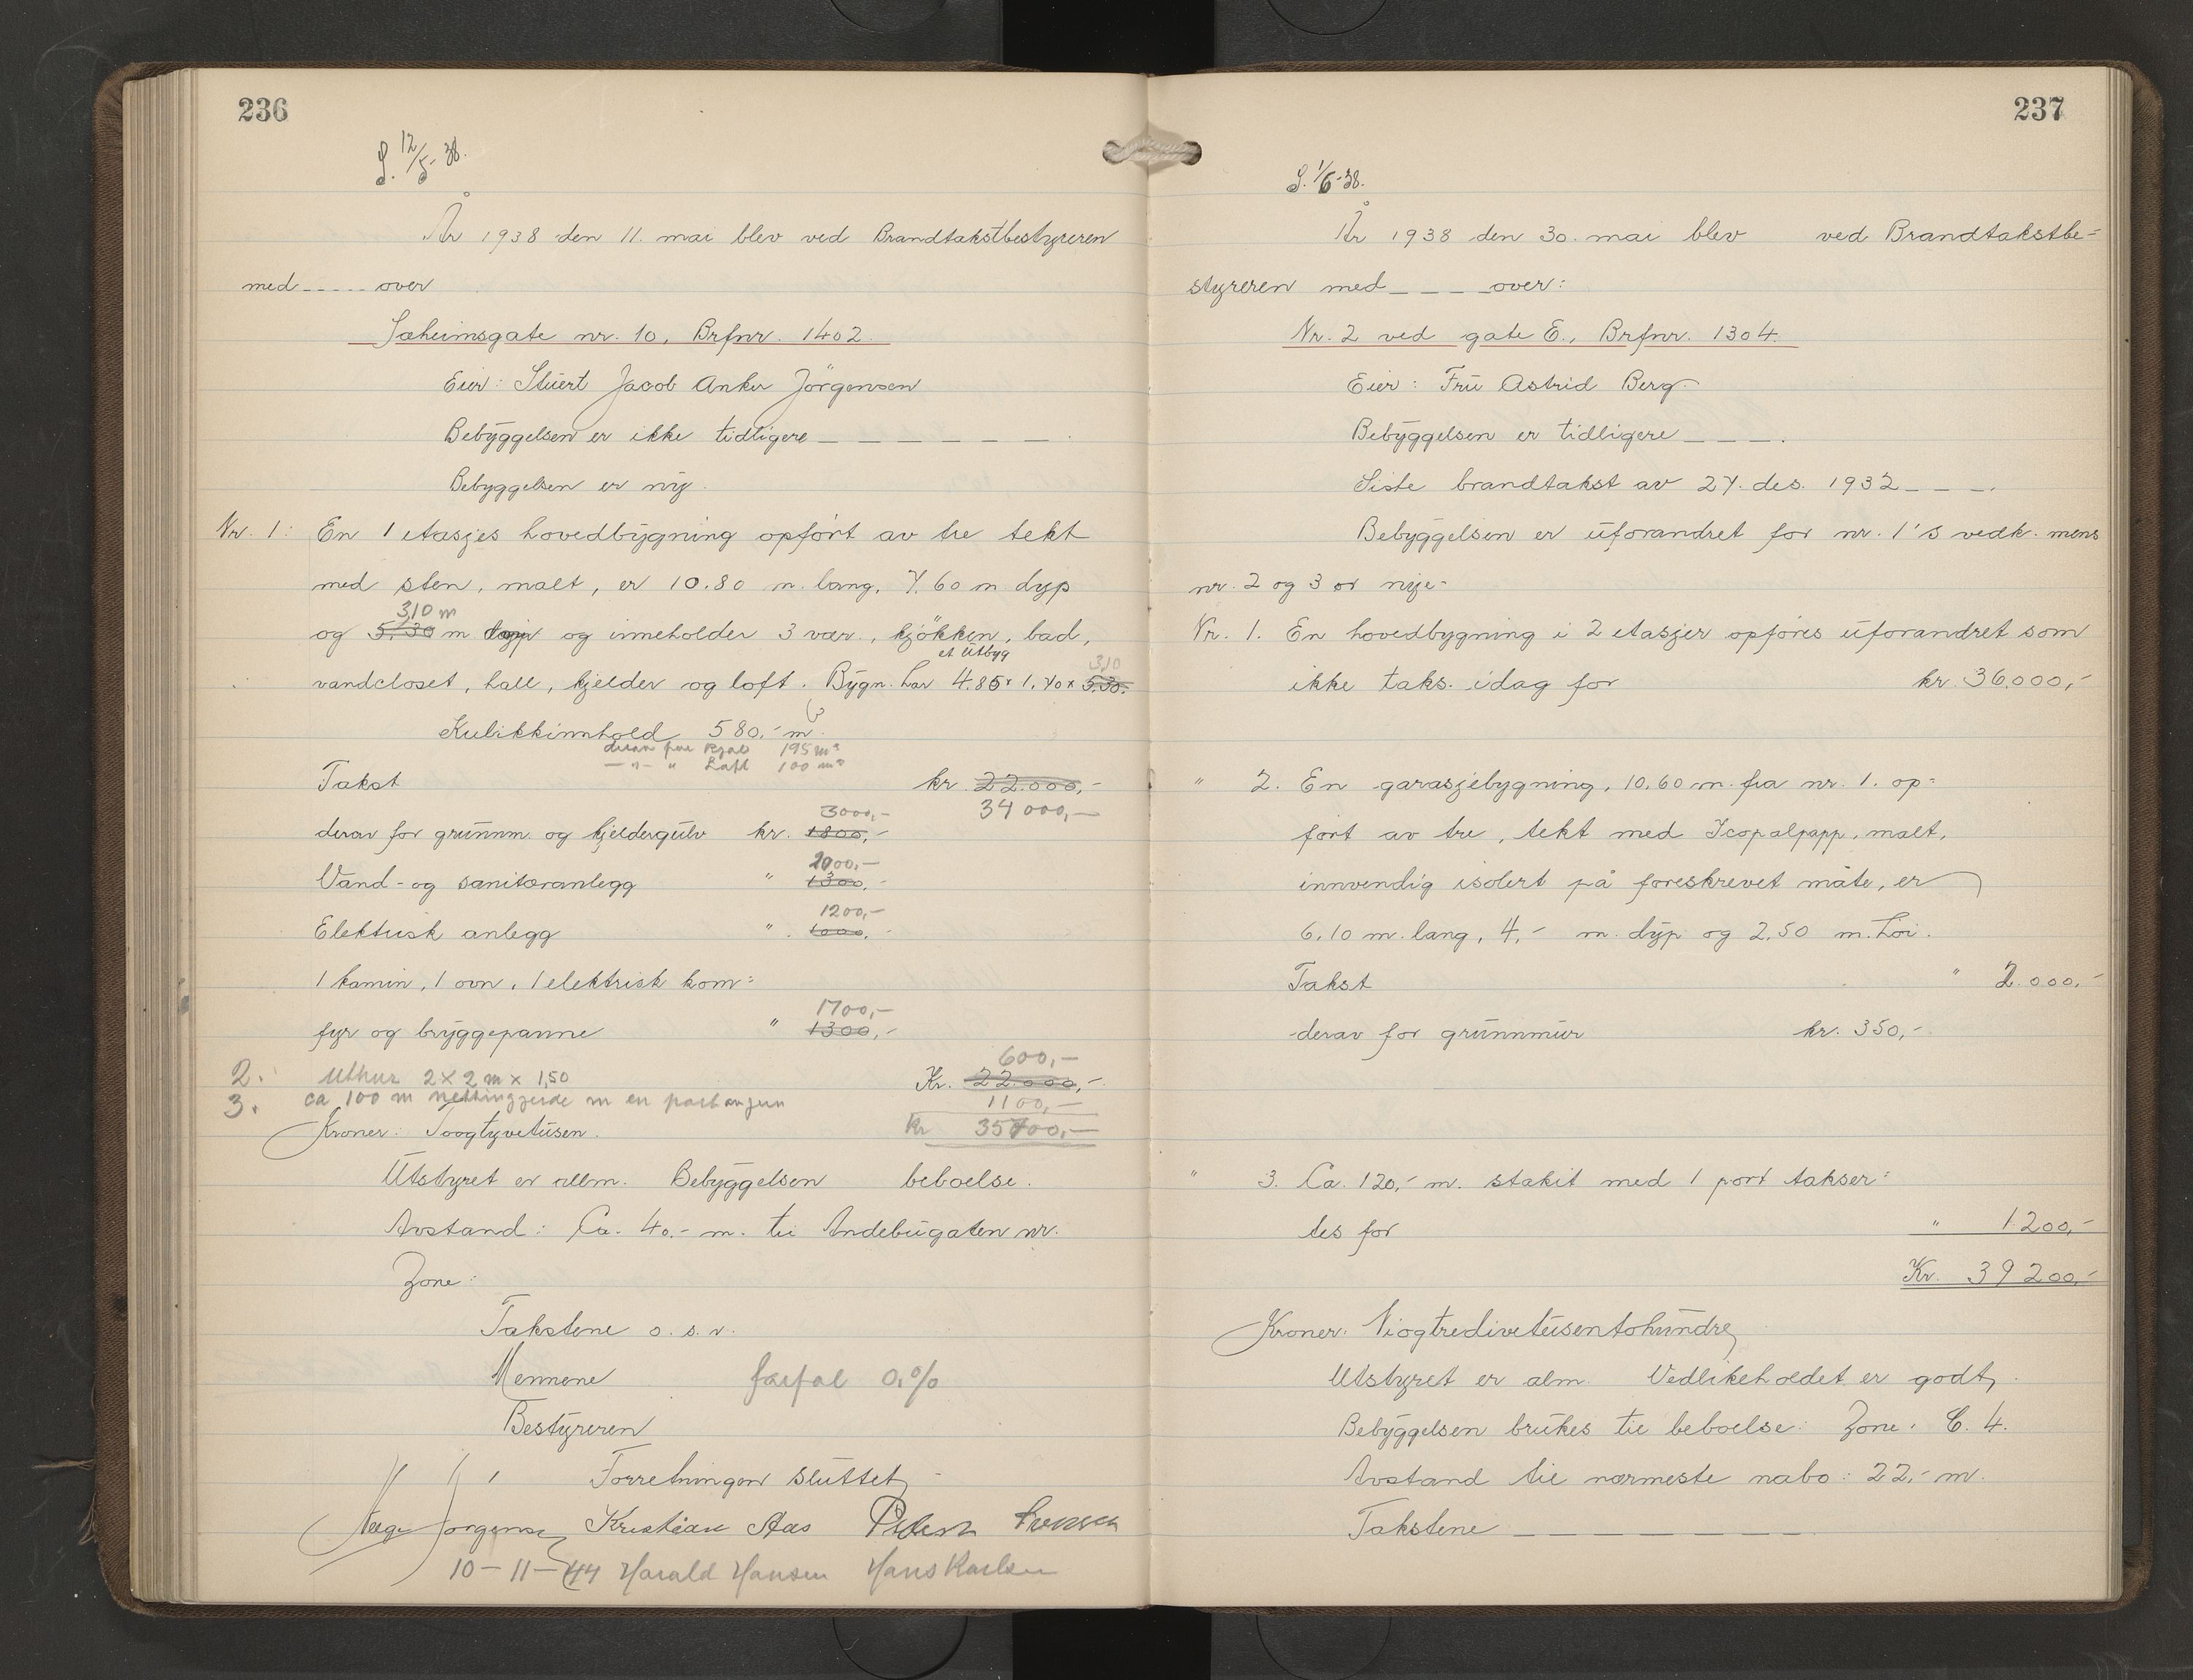 236
S. 12/5-38.
År 1938 den 11. mai blev ved Brandtakstbestyreren
med ----- over
Jæheimsgate nr. 10, Brfnr. 1402.
Eier: Stuert Jacob Anker Jörgensen
Bebyggelsen er ikke tidligere — — — — — —.
Bebyggelsen er ny.
Nr. 1: En 1 etasjes hovedbygning opfört av tre tekt
med sten, malt, er 10.80 m. lang, 7.60 m. dyp
3,10 m
og 5.30 m og inneholder 3 vær., kjökken, bad,
et utbyg
3,10
vandcloset, hall, kjelder og loft. Bygn. har 4.85 x 1.70 x 5.30.
Kubikkinnhold 580,- m3.
derav for kjæl 195 m3
— " — " Loft 100 m3
Takst kr. 22.000,-
3000,- 34 000,-
derav for grunnm. og kjeldergulv kr. 1800,-
2000,-
Vand- og sanitæranlegg " 1300,-
1200,-
Elektrisk anlegg " 1000,-
1 kamin, 1 ovn, 1 elektrisk kom=
1700,-
fyr og bryggepanne " 1300,-
600,-
2. Uthus 2 x 2 m x 1,50 Kr. 22000,-
3. ca 100 m nettinggjerde m en port 1100,-
Kroner: Toogtyvetusen. Kr 35700,-
Utstyret er allm. Bebyggelsen beboelse.
Avstand: Ca. 40,- m. til Andebugaten nr.
Zone:
Takstene o. s. v.
Mennene forfal 0.%
Bestyreren
Forretningen sluttet.
Aage Jörgensen Kristian Aas Peder Svensen
10-11-44 Harald Hansen Hans Karlsen
237
S. 1/6-38.
År 1938 den 30. mai blev ved Brandtakstbe-
styreren med _ _ _ _ over:
Nr. 2 ved gate E., Brfnr. 1304.
Eier: Fru Astrid Berg
Bebyggelsen er tidligere _ _ _.
Siste brandtakst av 27. des. 1932 _ _ _.
Bebyggelsen er uforandret for nr. 1's vedk. mens
nr. 2 og 3 er nye.
Nr. 1. En hovedbygning i 2 etasjer opföres uforandret som
ikke taks. idag for kr. 36.000,-
" 2. En garasjebygning, 10.60 m. fra nr. 1. op=
fört av tre, tekt med Icopalpapp, malt,
innvendig isolert på foreskrevet måte, er
6.10 m. lang, 4,- m. dyp og 2.50 m. höi.
Takst " 2.000,-
derav for grunnmur kr. 350,-
" 3. Ca. 120,- m. stakit med 1 port takser=
tes for " 1.200,-
Kr. 39200,-
Kroner: Niogtredivetusentohundre
Utstyret er alm. Vedlikeholdet er godt.
Bebyggelsen brukes til beboelse. Zone: C. 4.
Avstand til nærmeste nabo: 22,- m.
Takstene — — — — — — — —